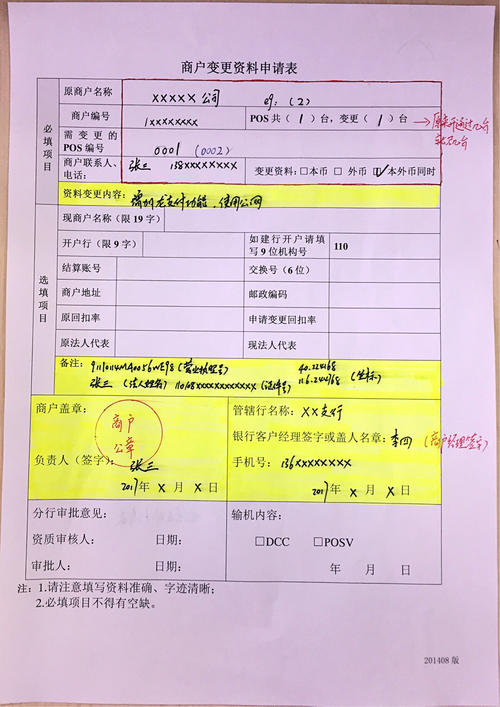 商户变更资料申请表
必填项目
原商户名称 XXXXX公司 eg:(2)
商户编号 1XXXXXXXX POS共(1)台，变更(1)台
需变更的POS编号 0001 (0002)
商户联系人、电话: 张三 138XXXXXXXX 变更资料:□本币 □外币 ☑本外币同时
资料变更内容: 增加龙支付功能，使用公网
选填项目
现商户名称（限19字）
开户行（限9字） 如建行开户请填写9位机构号 110
结算账号 交换号（6位）
商户地址 邮政编码
原回扣率 申请变更回扣率
原法人代表 现法人代表
备注: 91110114MA0056WE98 (营业执照号) 40.224168
张三 (法人姓名) 110108XXXXXXXXXXXX (证件号) 116.244168 (坐标)
商户盖章: 管辖行名称: XX支行
商户公章
银行客户经理签字或盖人名章: 李四 (商户经理签字)
负责人（签字）: 张三 手机号: 136XXXXXXXX
2017年 X 月 X 日 2017年 X 月 X 日
分行审批意见: 输机内容:
资质审核人: 日期: □DCC □POSV
审批人: 日期: 年 月 日
注: 1.请注意填写资料准确、字迹清晰;
2.必填项目不得有空缺。
201408 版